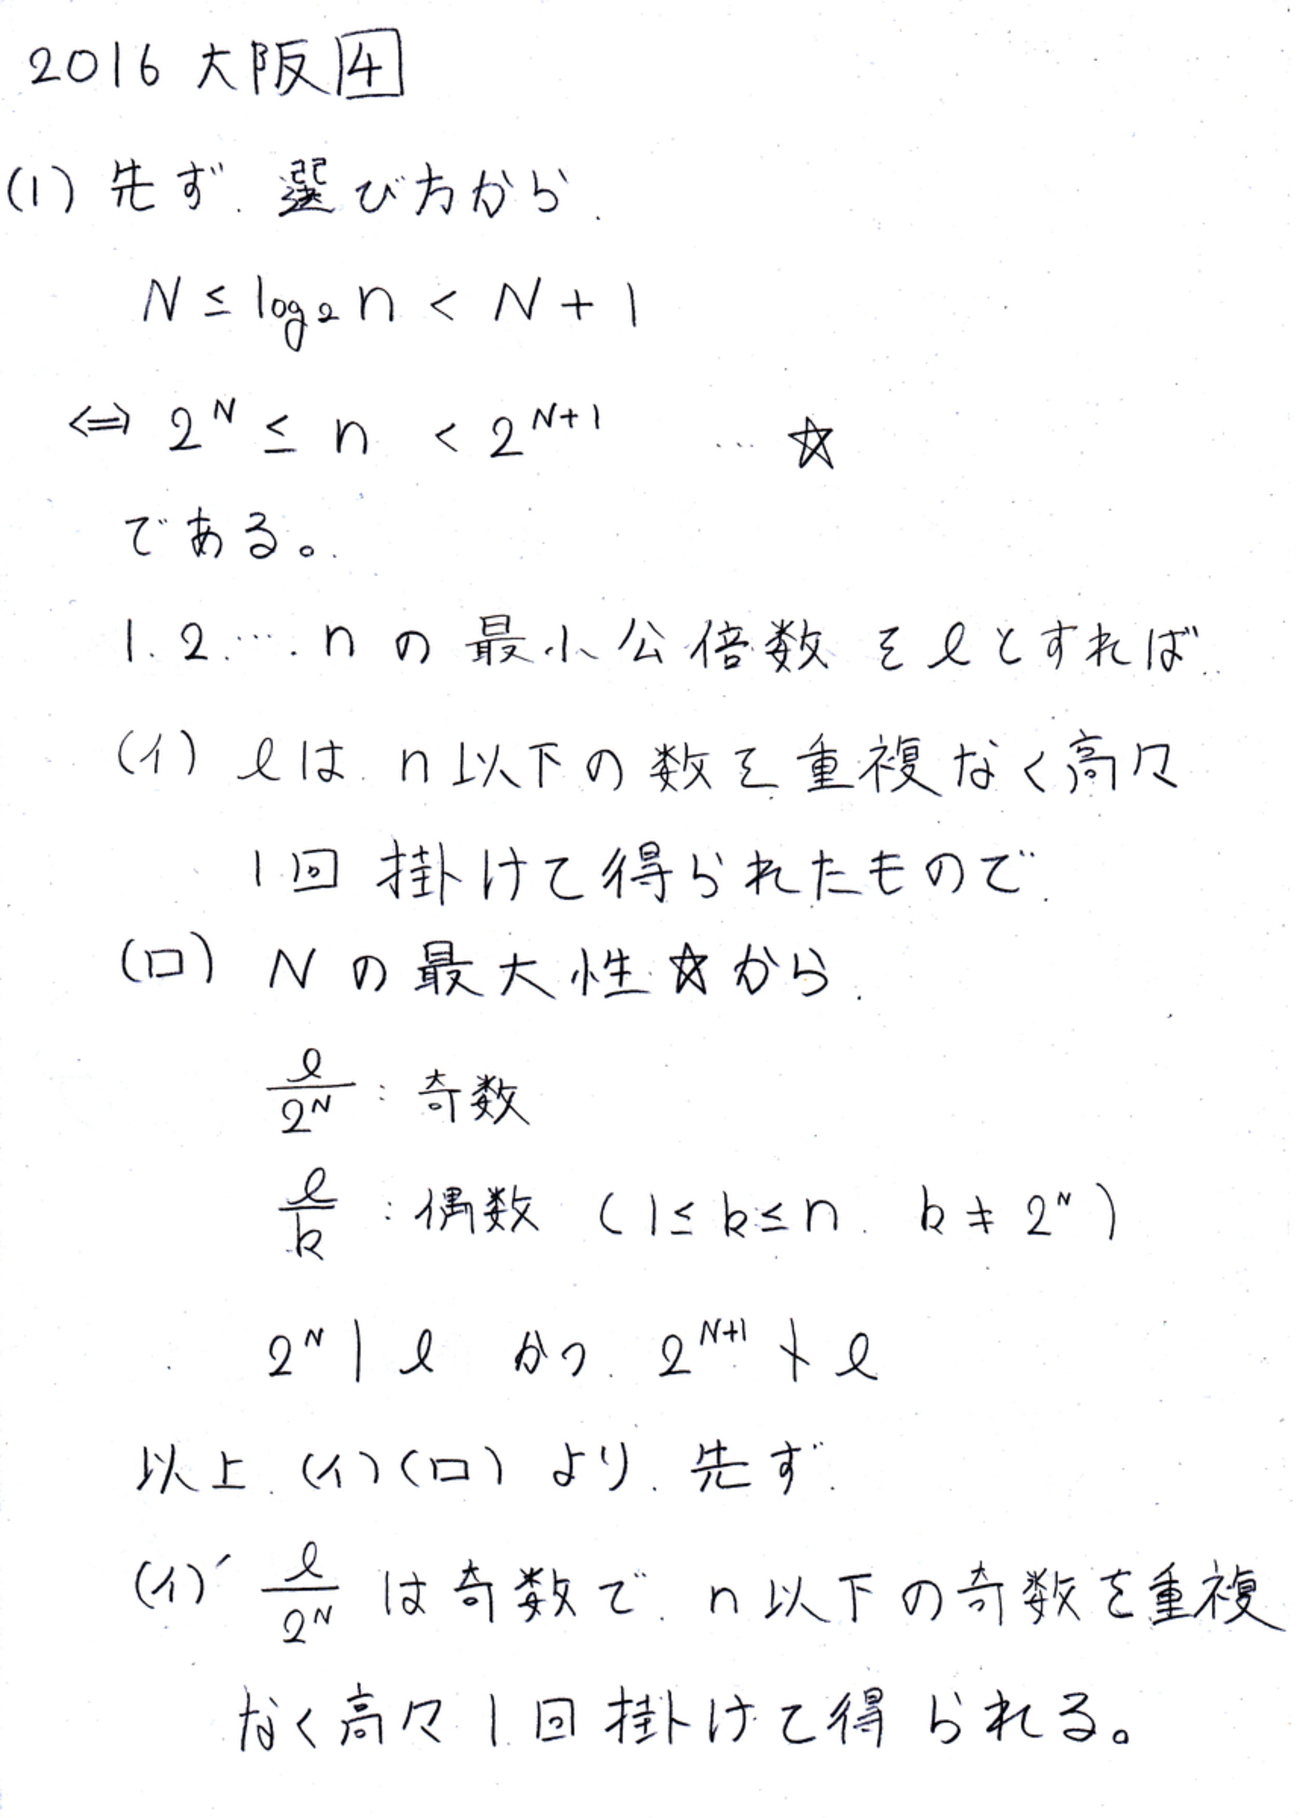 2016 大阪 4
(1) 先ず. 選び方から.
N ≤ log₂ n < N + 1
⇔ 2^N ≤ n < 2^{N+1} … ☆
である。
1. 2. …. n の 最小公倍数 を ℓ とすれば.
(イ) ℓは. n 以下の数を重複なく高々
1回 掛けて得られたもので.
(ロ) N の最大性 ☆から.
ℓ/2^N : 奇数
ℓ/k : 偶数 (1 ≤ k ≤ n. k ≠ 2^N)
2^N | ℓ かつ. 2^{N+1} ∤ ℓ
以上. (イ)(ロ) より. 先ず.
(イ)′ ℓ/2^N は奇数で. n 以下の奇数を重複
なく高々 1回 掛けて得られる。